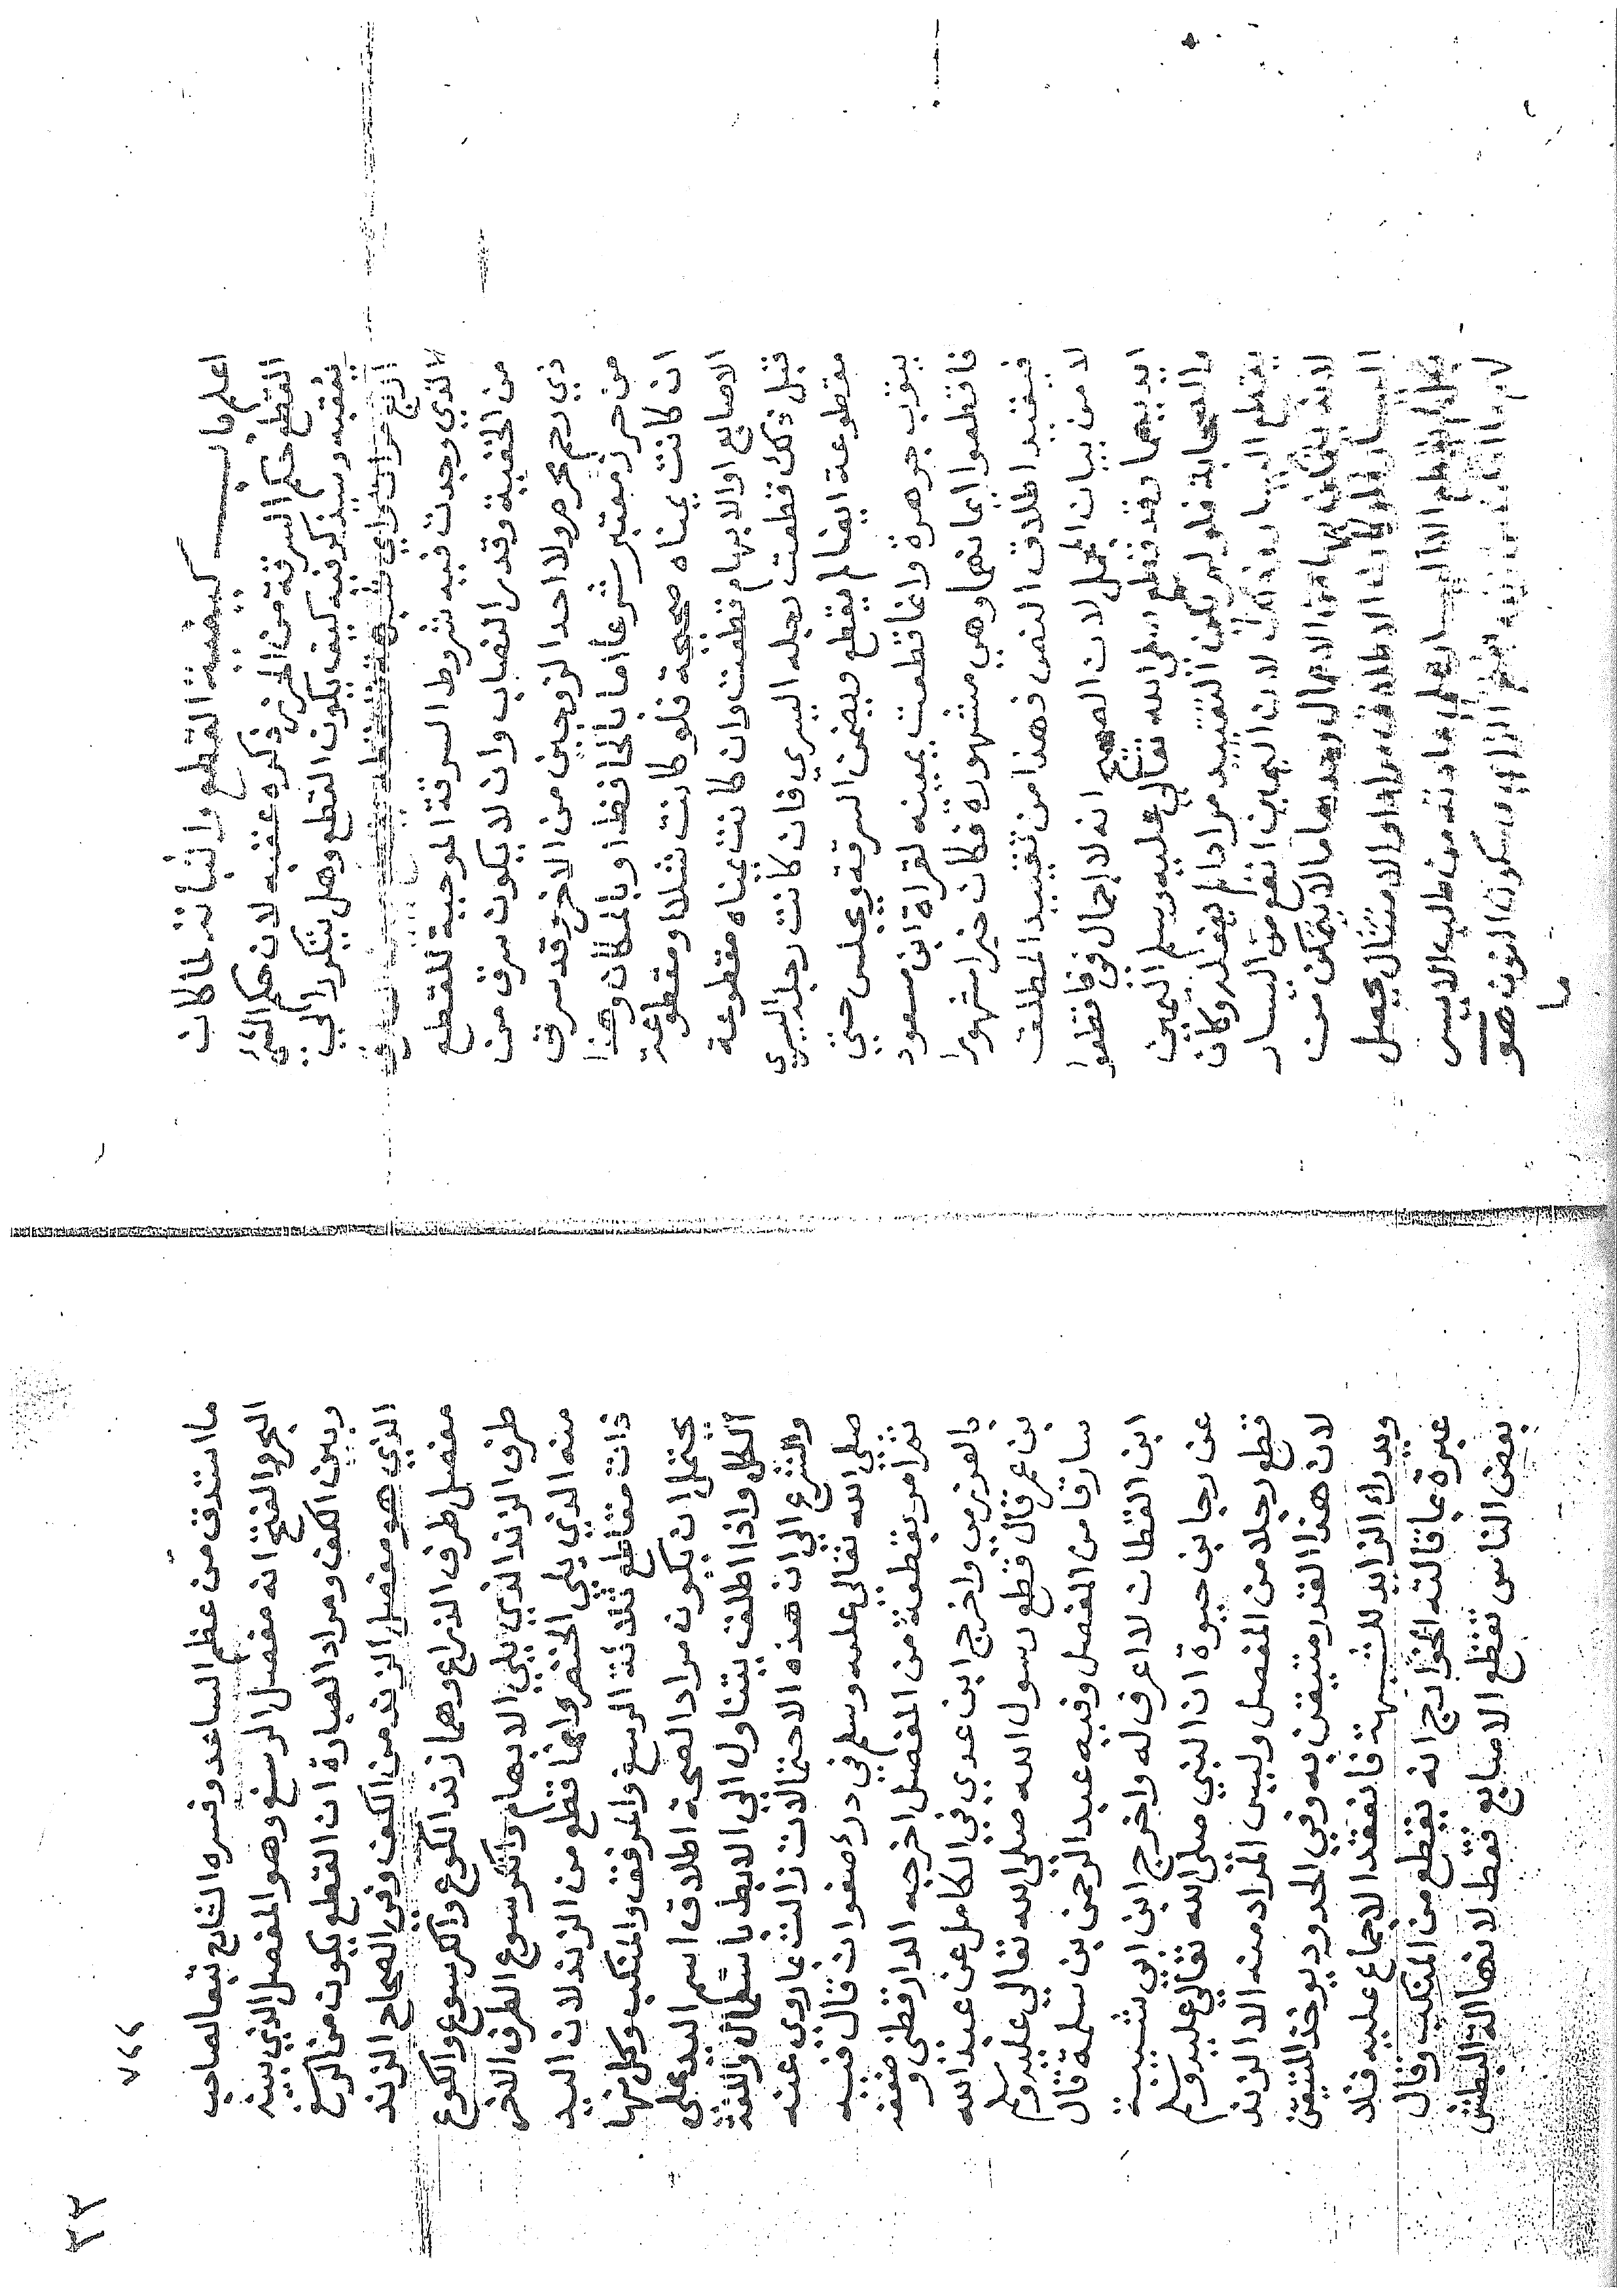 باب كيفية القطع واثباته لما كان
القطع حكم السرقة من الحرز ذكره عقبه لان حكم الشئ
يعقبه وسيذكر فيه كيف يكون القطع وهل يتكرر الي
الذي وجدت فيه شروط السرقة الموجبة للقطع
من الخفية وقدر النصاب وان لا يكون سرق من
ذي رحم محرم ولا احد الزوجين من الاخر وقد سرق
من حرز معتبر شرعا اما بالحافظ او بالمكان وهذا
ان كانت يمناه صحيحة فلو كانت شلا او مقطوعة
الاصابع او الابهام قطعت وان كانت يمناه مقطوعة
قبل ذلك قطعت رجله اليسري فان كانت رجله اليسري
مقطوعة ايضا لم يقطع ويضمن السرقة ويحبس حتي
يتوب جوهرة وانما قطعت يمينه لقراة ابن مسعود
فاقطعوا ايمانهما وهي مشهورة فكان خبرا مشهورا
فيقيد اطلاق النص فهذا من تقييد المطلق
لا من بيان المجمل لان الصحيح انه لا اجمال في فاقطعوا
ايديهما وقد قطع صلي الله تعالي عليه وسلم اليمين
والصحابة فلو لم يكن التقييد مرادا لم يفعله وكان
يقطع اليسار وذلك لان اليمين انفع من اليسار
لانه يتمكن بها من الاعمال وحدها ما لا يتمكن من
اليسار فلو كان الاطلاق مرادا والامتثال يحصل
بكل لم يقطع الا اليسار علي عادته من طلب الايسر
لهم سكون النون هو
ما
٢٢
٧٤٤
ما استدق من عظم الساعد وفسره الشارح تبعا لصاحب
البحر والفتح انه مفصل الرسغ وهو المفصل الذي بينه
وبين الكف ومراد العبارة ان القطع يكون من الرسغ
الذي هو مفصل الزند من الكف وفي الصحاح الزند
مفصل طرف الذراع وهما زندا الكوع والكرسوع والكوع
طرف الزند الذي يلي الابهام والكرسوع الطرف الاخر
منه الذي يلي الخنصر وانما قطع من الزند لان اليد
ذات مقاطع ثلاثة الرسغ والمرفق والمنكب وكل منها
يحتمل ان يكون مراد الصحة اطلاق اسم اليد علي
الكل واذا اطلق يتناول الي الابط باستعمال اللغة
والشرع الي ان هذه الاحتمالات زالت بما روي عنه
صلي الله تعالي عليه وسلم في درء صفوان قال فيه
ثم امر بقطعه من المفصل اخرجه الدارقطني وضعفه
بالعزرمي واخرج ابن عدي في الكامل عن عبد الله
بن عمر قال قطع رسول الله صلي الله تعالي عليه وسلم
سارقا من المفصل وفيه عبد الرحمن بن سلمة قال
ابن القطان لا اعرف له واخرج ابن ابي شيبة
عن رجا بن حيوة ان النبي صلي الله تعالي عليه وسلم
قطع رجلا من المفصل وليس المراد منه الا الزند
لان هذا القدر متيقن به وفي الحدود يوخذ المتيقن
ويدراء الزايد للشبهة فانعقد الاجماع عليه فلا
عبرة بما قالته الخوارج انه يقطع من المنكب وقال
بعض الناس تقطع الاصابع فقط لانها آلة البطش